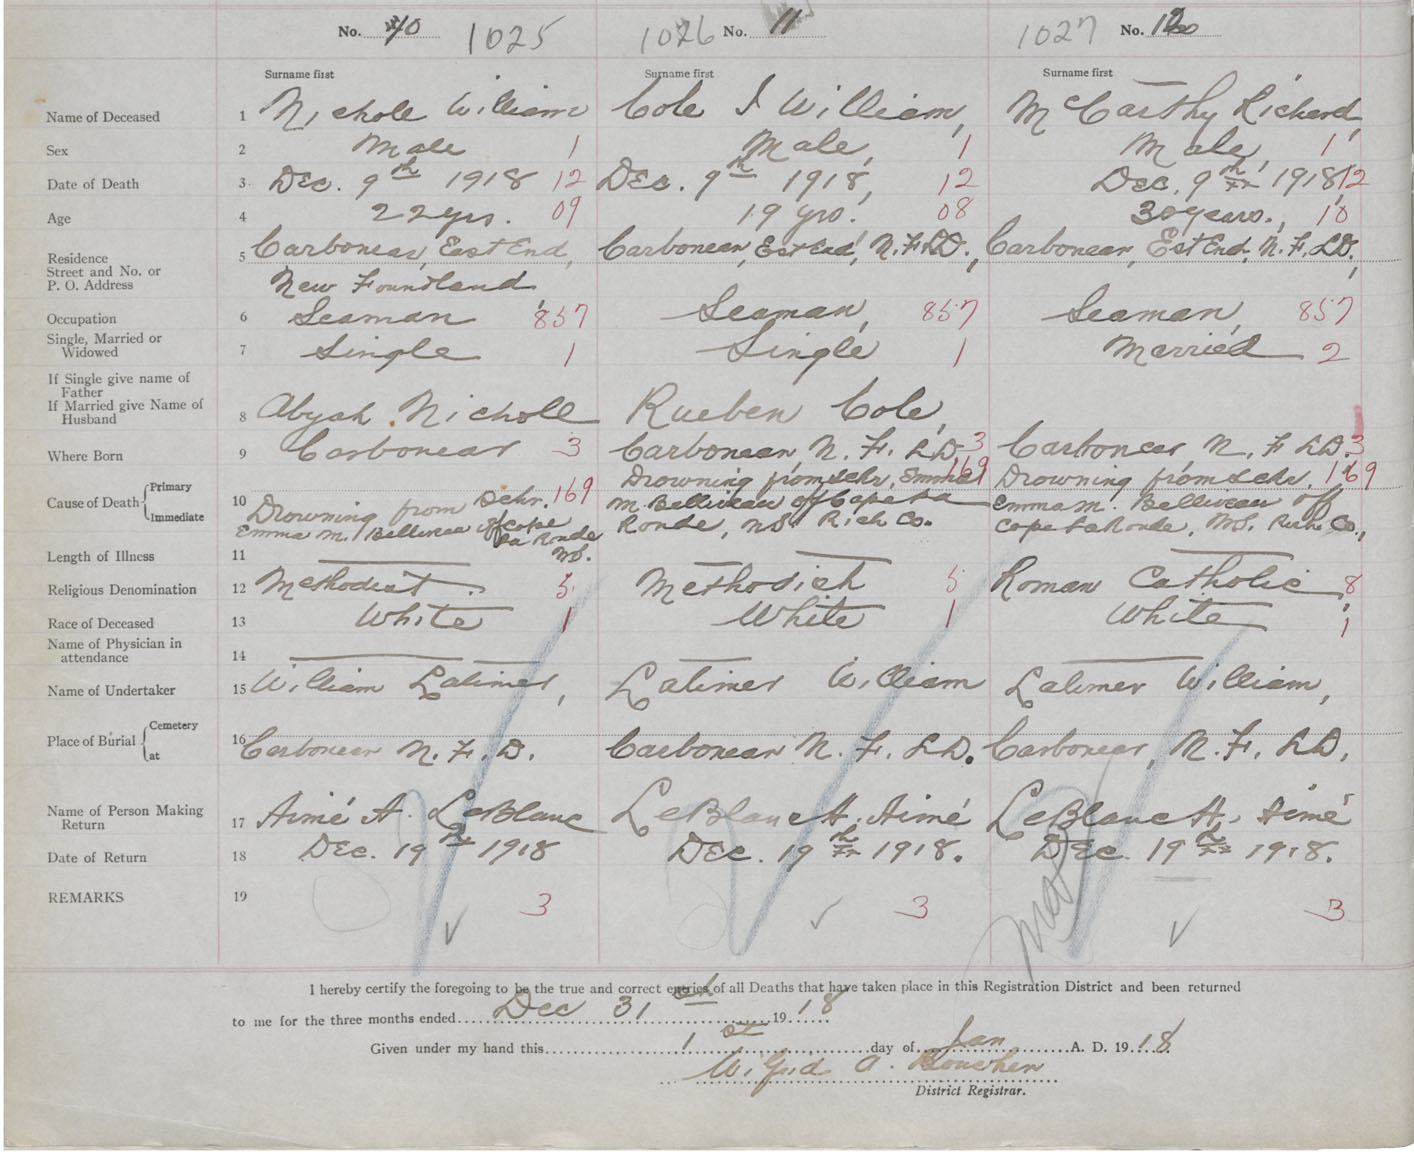 No. 10 1025 1026 No. 11 1027 No. 12
Surname first Surname first Surname first
Name of Deceased 1 Nicholl William Cole J William, McCarthy Richard,
Sex 2 Male 1 Male, 1 Male, 1
Date of Death 3 Dec. 9th 1918 12 Dec. 9th 1918, 12 Dec. 9th 1918, 12
Age 4 22 yrs. 09 19 yrs. 08 30 years., 10
Residence
Street and No. or
P. O. Address
5 Carbonear, East End, Carbonear, Est End, N. F. LD., Carbonear, Est End, N. F. LD.,
New Foundland
Occupation 6 Seaman 857 Seaman, 857 Seaman, 857
Single, Married or
Widowed 7 Single 1 Single 1 Married 2
If Single give name of
Father
If Married give Name of
Husband 8 Abyah Nicholl Rueben Cole,
Where Born 9 Carbonear 3 Carbonear, N. F. LD 3 Carbonear N. F LD. 3
Cause of Death { Primary
Immediate
10 Drowning from Schr. 169 Drowning from schr, Emma 169 Drowning from schr. 169
Emma M. Belliveau off Cape M. Belliveau off Cape La Emma M. Belliveau off
La Ronde Ronde, NS Rich Co. Cape LaRonde, NS. Rich Co.,
NS.
Length of Illness 11
Religious Denomination 12 Methodist. 5 Methodist 5 Roman Catholic 8
Race of Deceased 13 White 1 White 1 White 1
Name of Physician in
attendance 14
Name of Undertaker 15 William Latimer, Latimer William Latimer William,
Place of Burial { Cemetery
at
16 Carbonear N. F. D. Carbonear N. F. LD. Carbonear, N. F. LD.
Name of Person Making
Return 17 Aimé A. LeBlanc LeBlanc A. Aimé LeBlanc A. Aimé
Date of Return 18 Dec. 19th 1918 Dec. 19th 1918. Dec. 19th 1918.
REMARKS 19 3 3 3
I hereby certify the foregoing to be the true and correct entries of all Deaths that have taken place in this Registration District and been returned
to me for the three months ended Dec 31st 1918
Given under my hand this 1st day of Jan A. D. 1918
A.
District Registrar.